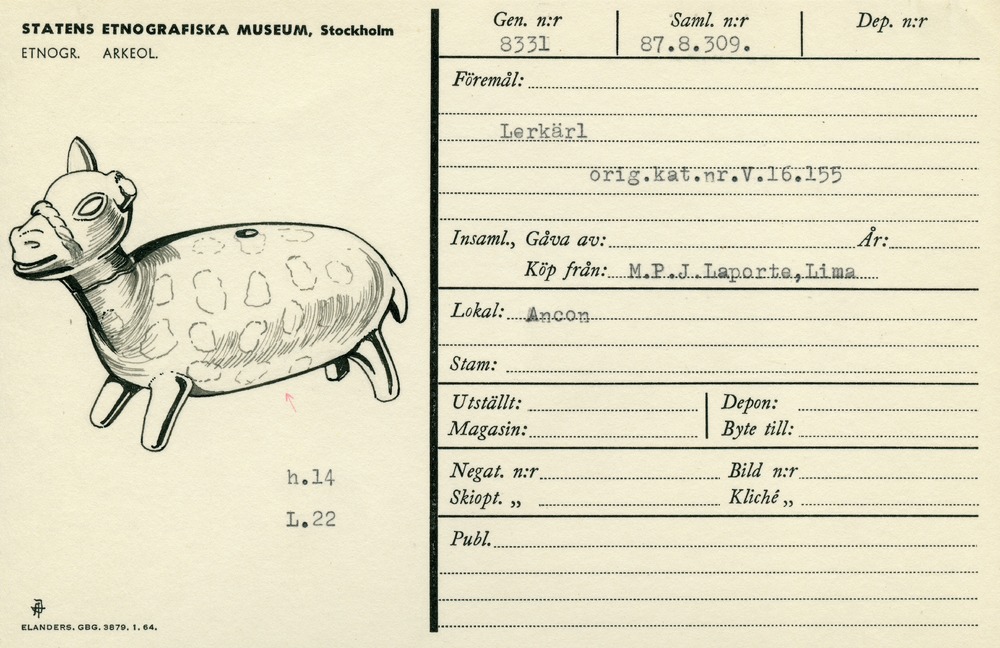 STATENS ETNOGRAFISKA MUSEUM, Stockholm
ETNOGR. ARKEOL.
h.14
L.22
ELANDERS. GBG. 3879. 1. 64.
Gen. n:r Saml. n:r Dep. n:r
8331 87.8.309.
Föremål:
Lerkärl
orig.kat.nr.V.16.155
Insaml., Gåva av: År:
Köp från: M.P.J.Laporte,Lima
Lokal: Ancon
Stam:
Utställt: Depon:
Magasin: Byte till:
Negat. n:r Bild n:r
Skiopt. „ Kliché „
Publ.